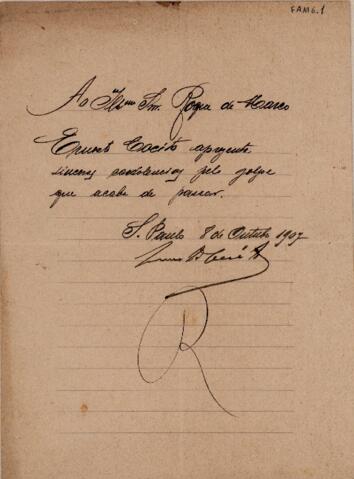 FAM6.1
Ao Illmo Snr. Roque de Marco
Ernesto Cocito apresenta
sinceras condolencias pelo golpe
que acaba de passar.
S. Paulo 8 de Outubro 1907
R